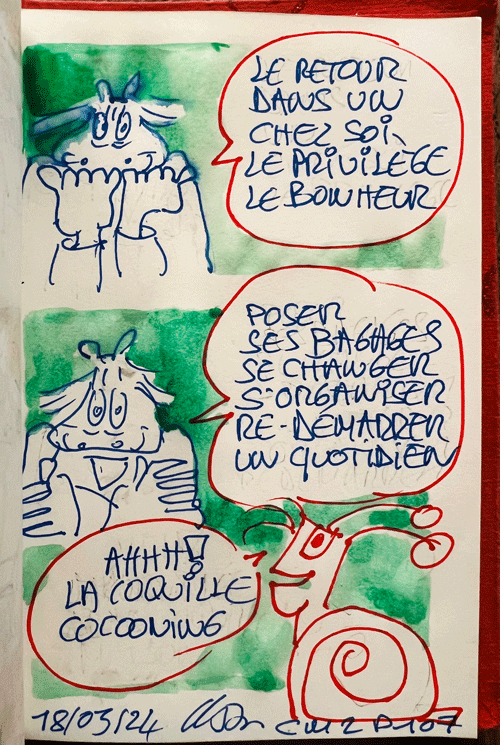 LE RETOUR
DANS UN
CHEZ SOI,
LE PRIVILÈGE
LE BONHEUR
POSER
SES BAGAGES
SE CHANGER
S'ORGANISER
RE-DÉMARRER
UN QUOTIDIEN
AHHH!
LA COQUILLE
COCOONING
18/03/24